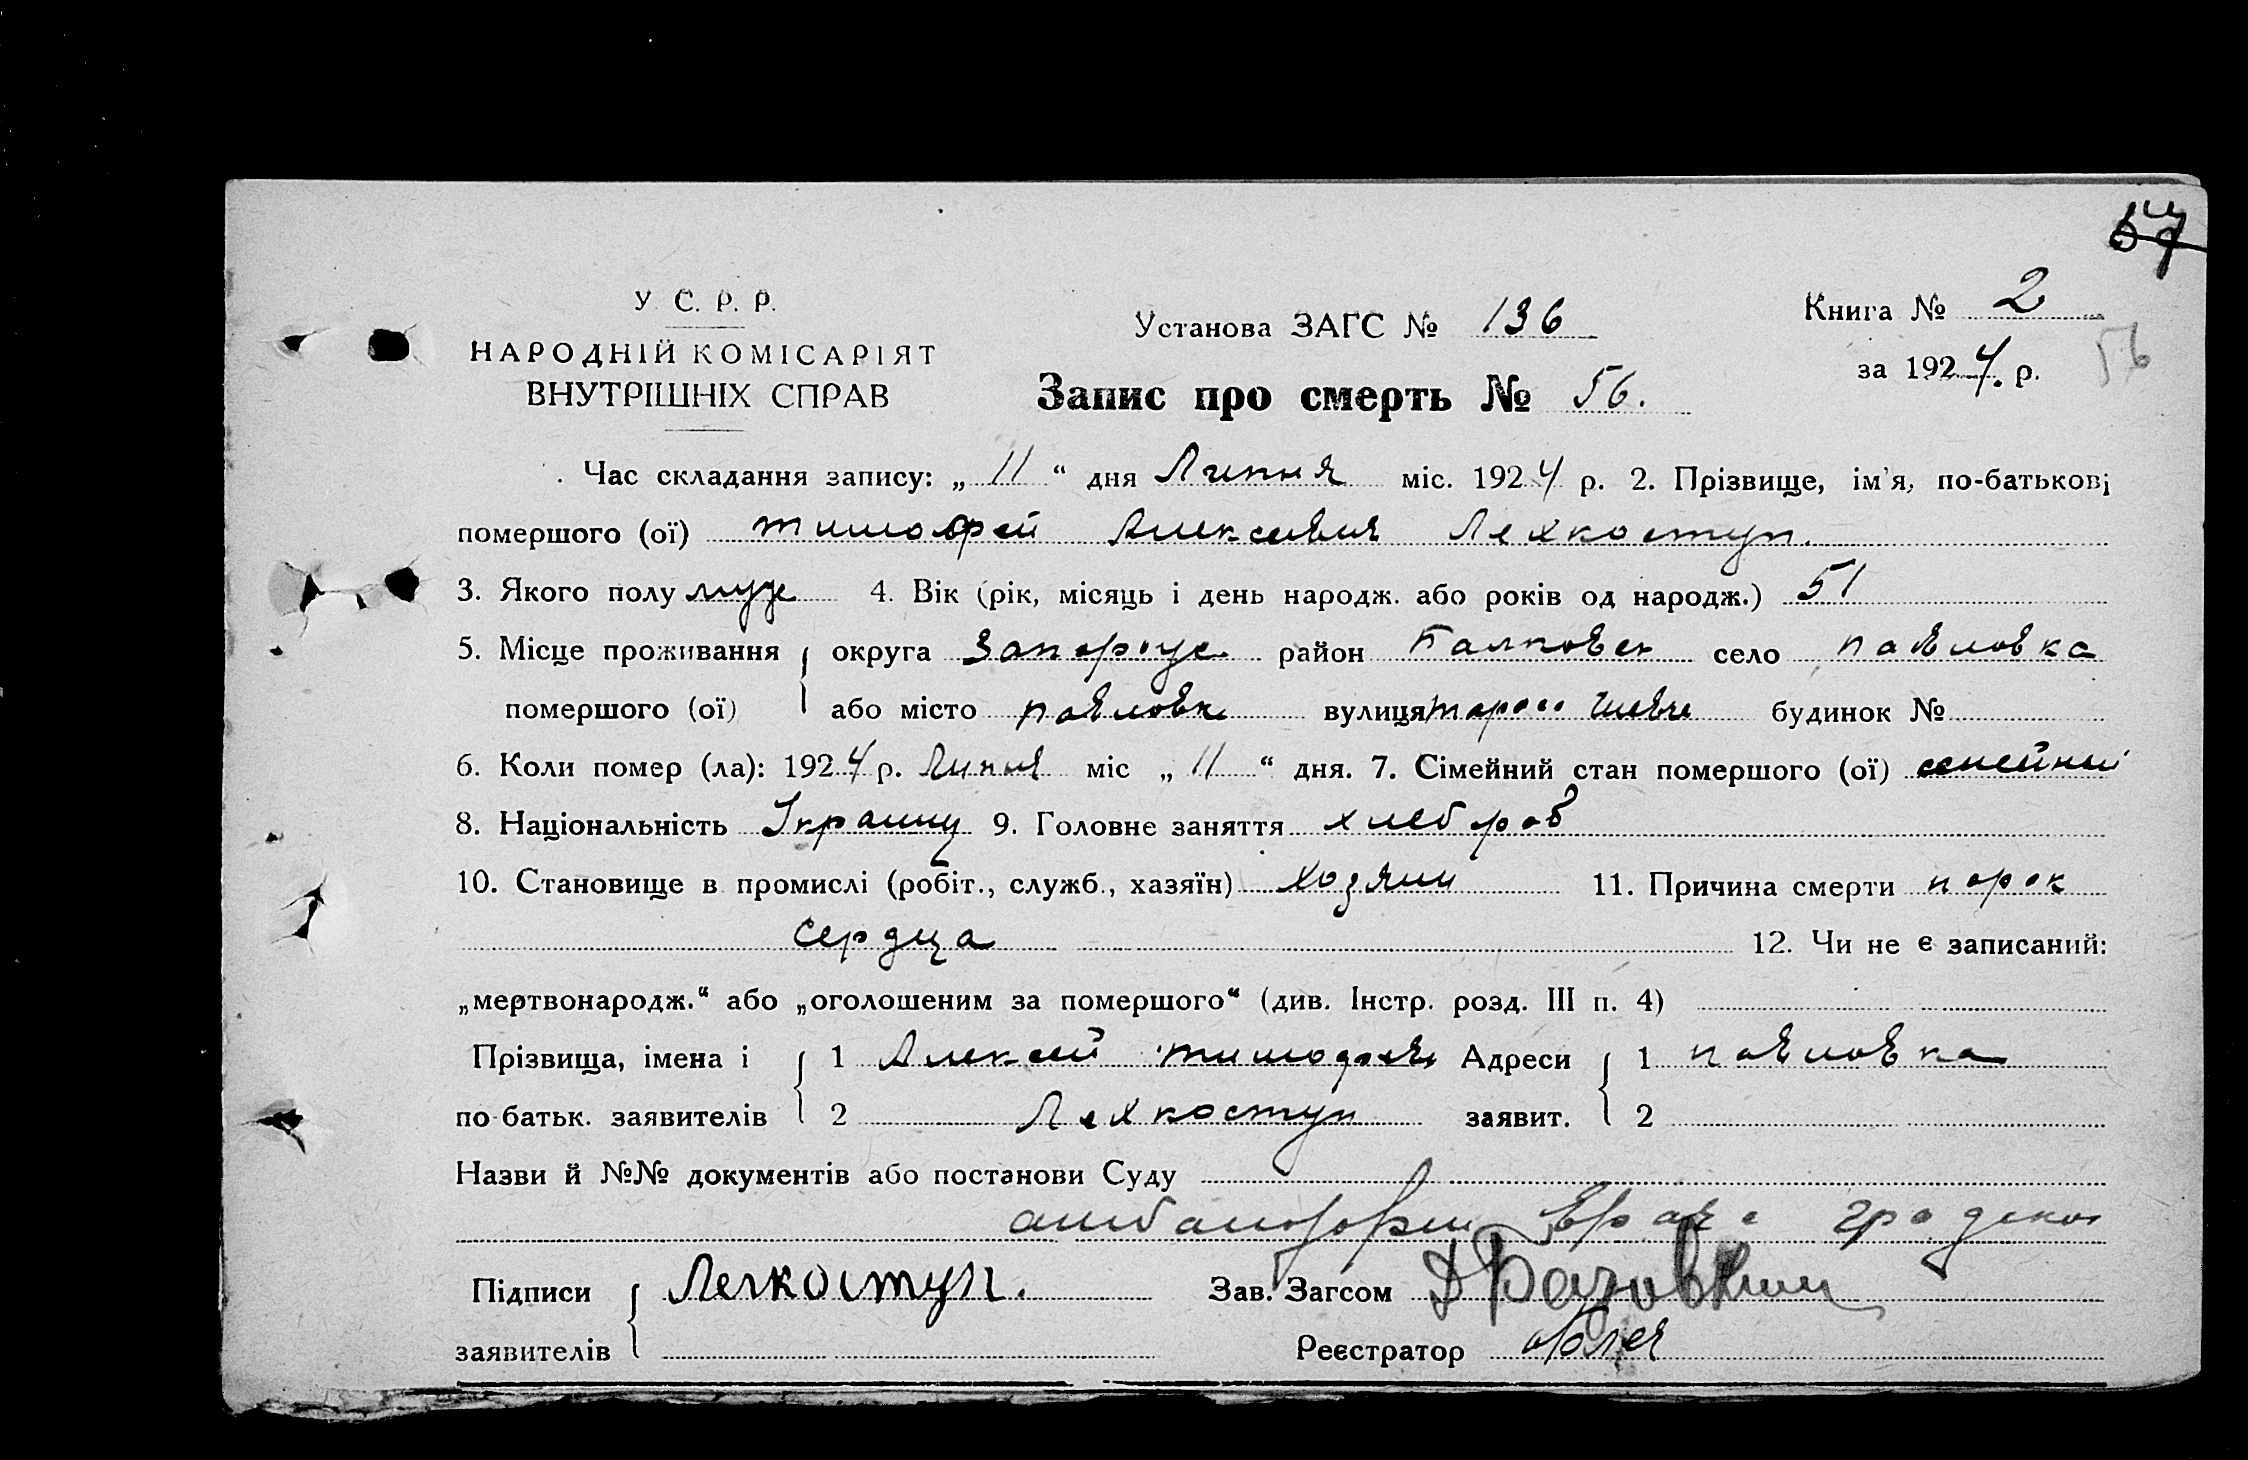 57
У. С. Р. Р.
НАРОДНІЙ КОМІСАРІЯТ
ВНУТРІШНІХ СПРАВ
Установа ЗАГС № 136
Книга № 2
за 1924 р.
56
Запис про смерть № 56.
Час складання запису: „11“ дня Липня міс. 1924 р. 2. Прізвище, ім'я, по-батькові
помершого (ої) Тимофей Алексевия Лехкоступ.
3. Якого полу муже 4. Вік (рік, місяць і день народж. або років од народж.) 51
5. Місце проживання округа Запороже район село Павловка
помершого (ої) або місто Павловк вулиця Тарас Шевче будинок №
6. Коли помер (ла): 1924 р. Липня міс „11“ дня. 7. Сімейний стан помершого (ої) семейный
8. Національність 9. Головне заняття хлеброб
10. Становище в промислі (робіт., служб., хазяїн) хозяин 11. Причина смерти порок
сердца 12. Чи не є записаний:
„мертвонародж.“ або „оголошеним за помершого“ (див. Інстр. розд. III п. 4)
Прізвища, імена і 1 Алексей Адреси 1 Павловка
по-батьк. заявителів 2 Лехкоступ заявит. 2
Назви й №№ документів або постанови Суду
врача
Підписи Легкоступ. Зав. Загсом
заявителів Реєстратор